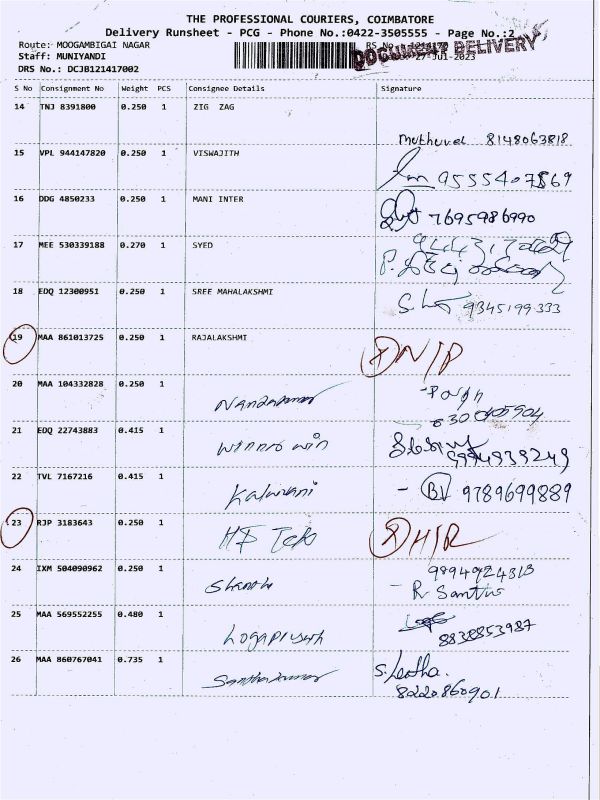 THE PROFESSIONAL COURIERS, COIMBATORE
Delivery Runsheet - PCG - Phone No.:0422-3505555 - Page No.:2
Route: MOOGAMBIGAI NAGAR RS No
Staff: MUNIYANDI 27-Jul-2023
DOCUMENT DELIVERY
DRS No.: DCJB121417002
S No Consignment No Weight PCS Consignee Details Signature
14 TNJ 8391800 0.250 1 ZIG ZAG
muthuvel 8148063818
15 VPL 944147820 0.250 1 VISWAJITH
9555407869
16 DDG 4850233 0.250 1 MANI INTER
7695986990
17 MEE 530339188 0.270 1 SYED
18 EDQ 12300951 0.250 1 SREE MAHALAKSHMI
9345199333
19 MAA 861013725 0.250 1 RAJALAKSHMI
N/P
20 MAA 104332828 0.250 1
Nandakumar
21 EDQ 22743883 0.415 1
winnro win
22 TVL 7167216 0.415 1
Kalaivani - BV 9789699889
23 RJP 3183643 0.250 1
H/R
24 IXM 504090962 0.250 1
9894924313
Shantha - R Santhi
25 MAA 569552255 0.480 1
8838853987
26 MAA 860767041 0.735 1
Santhakumar S. Leatha.
8220860901